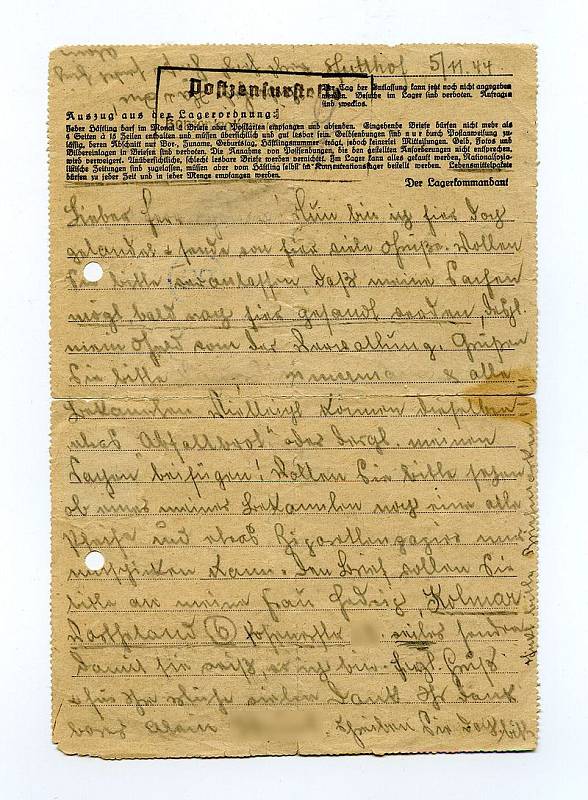 Stutthof 5/11.44.
Postzensurstelle
Der Tag der Entlassung kann jetzt noch nicht angegeben
werden. Besuche im Lager sind verboten. Anfragen
sind zwecklos.
Auszug aus der Lagerordnung:
Jeder Häftling darf im Monat 2 Briefe oder Postkarten empfangen und absenden. Eingehende Briefe dürfen nicht mehr als
4 Seiten à 15 Zeilen enthalten und müssen übersichtlich und gut lesbar sein. Geldsendungen sind nur durch Postanweisung zu-
lässig, deren Abschnitt nur Vor-, Zuname, Geburtstag, Häftlingsnummer trägt, jedoch keinerlei Mitteilungen. Geld, Fotos und
Bildereinlagen in Briefen sind verboten. Die Annahme von Postsendungen, die den gestellten Anforderungen nicht entsprechen,
wird verweigert. Unübersichtliche, schlecht lesbare Briefe werden vernichtet. Im Lager kann alles gekauft werden. Nationalsozia-
listische Zeitungen sind zugelassen, müssen aber vom Häftling selbst im Konzentrationslager bestellt werden. Lebensmittelpakete
dürfen zu jeder Zeit und in jeder Menge empfangen werden.
Der Lagerkommandant
Lieber Nun bin ich hier doch
gelandet + sende von hier viele Grüße. Wollen
Sie bitte veranlassen, daß meine Sachen
mögl. bald nach hier gesandt werden,
Geld von der Verwaltung. Grüßen
Sie bitte & alle
Bekannten Vielleicht können dieselben
etwas "Abfallbrot" oder dergl. meinen
Sachen beifügen! Wollen Sie bitte sehen
ob eines meiner Bekannten noch eine alte
Pfeife und etwas Zigarettenpapier
mitschicken kann. Den Brief wollen Sie
bitte an meine Frau Hedwig Kolmar
Wartheland senden
damit sie weiß, wo ich bin. Gruß
+ für Ihre Mühe vielen Dank Ihr dank
barer Schreiben Sie doch bitte